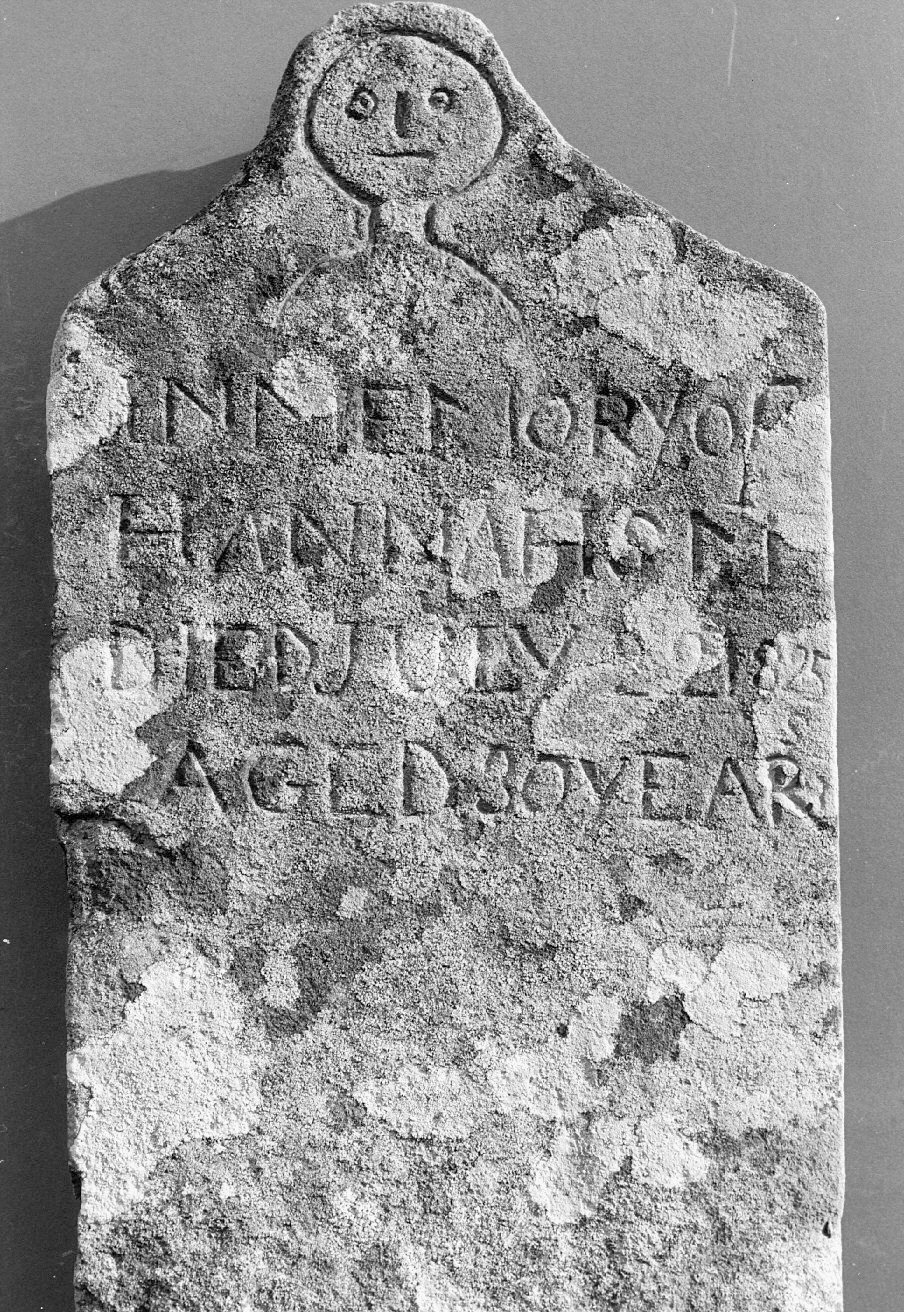 IN MEMORY OF
HANNAH
DIED JULEY 1825
AGED 80 YEARS